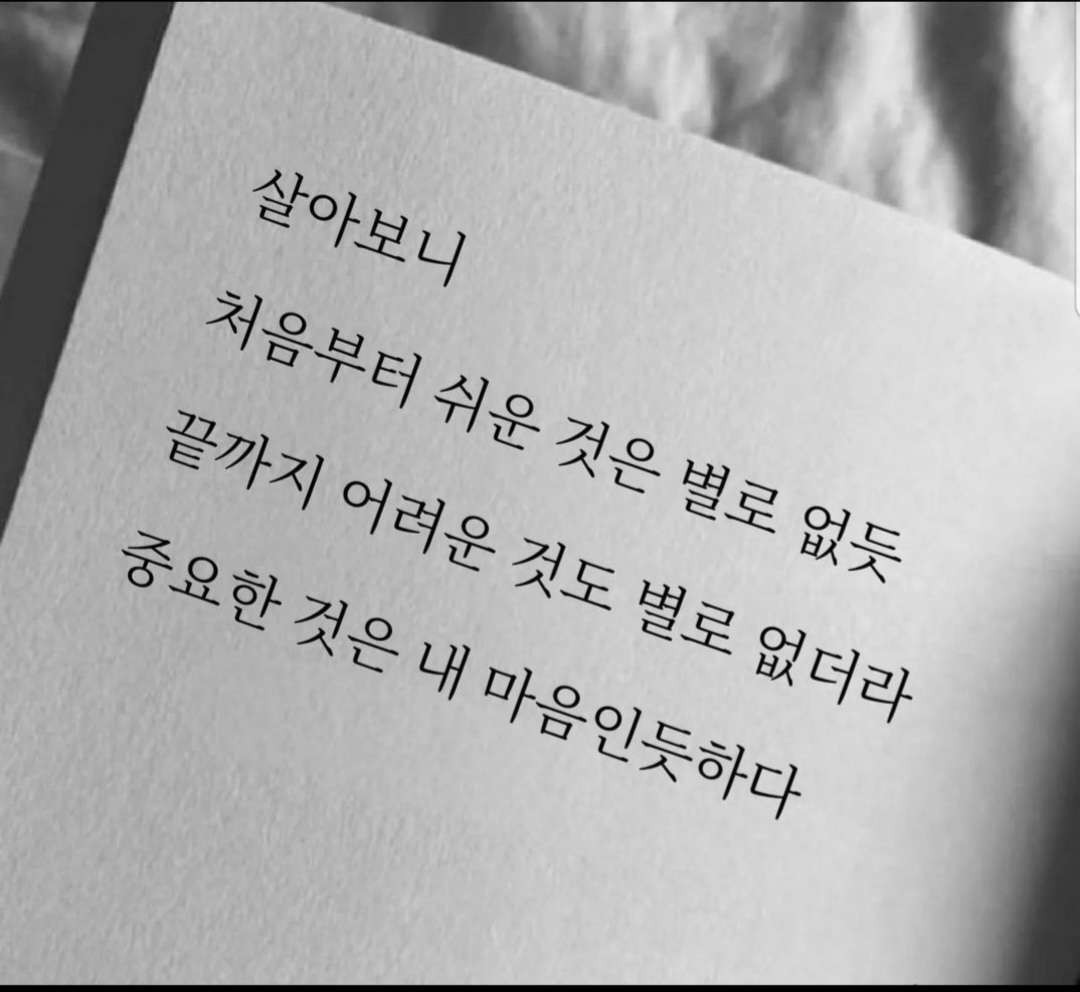 살아보니
처음부터 쉬운 것은 별로 없듯
끝까지 어려운 것도 별로 없더라
중요한 것은 내 마음인듯하다